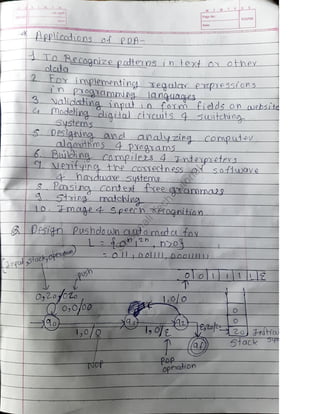 * Applications of PDA-
1. To Recognize patterns in text or other
data
2. For implementing regular expressions
in programming languages
3. Validating input in form fields on website
4. Modeling digital circuits & switching
systems
5. Designing and analyzing computer
algorithms & programs
6. Building compilers & Interpreters
7. Verifying the correctness of software
& hardware systems
8. Parsing context free grammars
9. String matching
10. Image & Speech recognition.
Q. Design Pushdown automata for
L = {0ⁿ1²ⁿ, n>0}
= 011, 001111, 000111111
push
0 0 1 1 1 1 ε
0, z0/0z0
0,0/00
1,0/0
0
0
z0
q0
q1
q2
1,0/0
1,0/ε
ε,z0/ε
qf
Stack
NOP
POP
operation